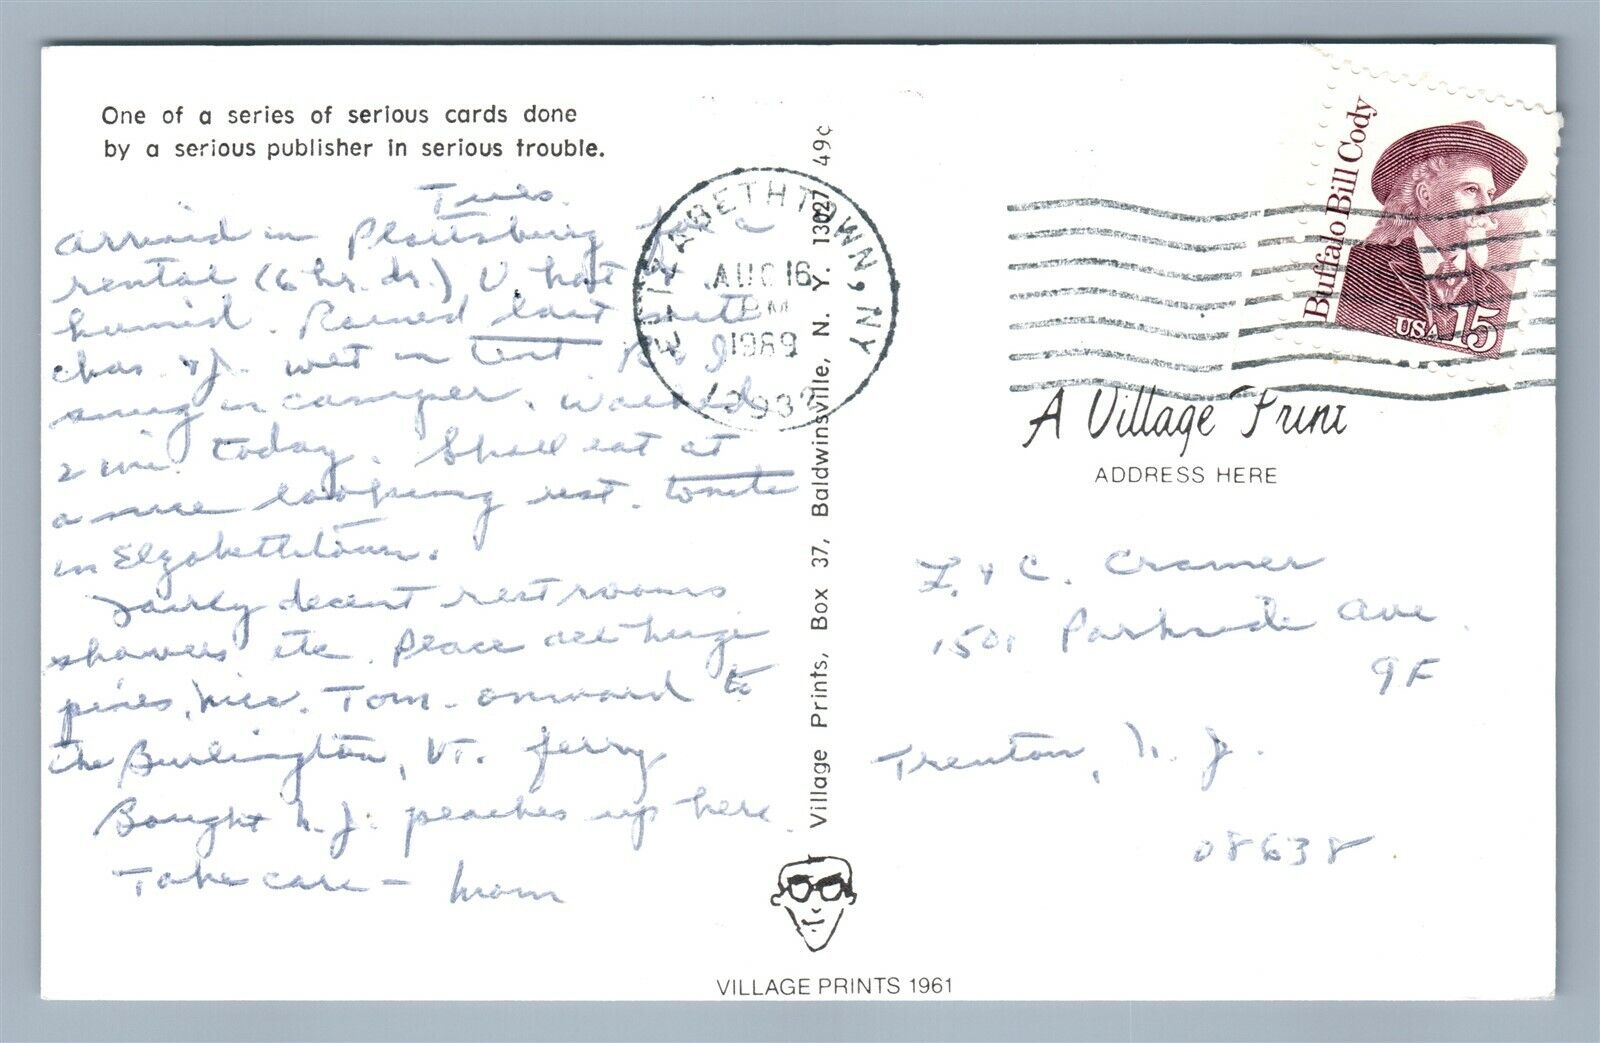 One of a series of serious cards done
by a serious publisher in serious trouble.
Tues.
Arrived in Plattsburg for a
rental (6 hr. dr.) V. hot &
humid. Rained last nite
Chas. & J. wet in tent. R & I
snug in camper. Walked
2 mi. today. Shall eat at
a nice looking rest. tonite
in Elizabethtown.
Fairly decent restrooms
showers etc. Place all huge
pines, nice. Tom. onward to
the Burlington, VT. ferry
Bought N.J. peaches up here.
Take care – Mom
ELIZABETHTOWN, NY
AUG 16
PM
1989
12932
Village Prints, Box 37, Baldwinsville, N. Y. 13027 49¢
Buffalo Bill Cody
USA 15
A Village Print
ADDRESS HERE
L. & C. Cramer
1501 Parkside Ave.
9F
Trenton, N. J.
08638
VILLAGE PRINTS 1961